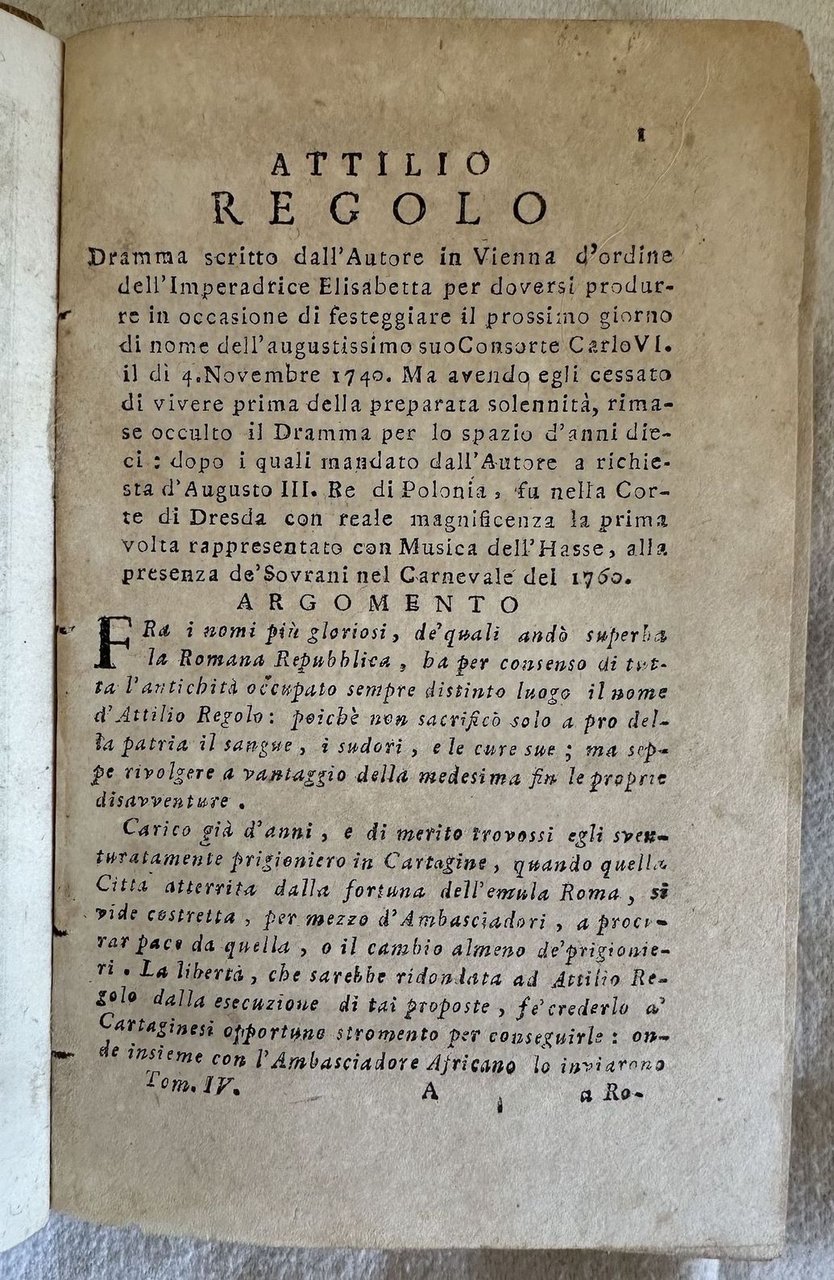 1
ATTILIO
REGOLO
Dramma scritto dall'Autore in Vienna d'ordine
dell'Imperadrice Elisabetta per doversi produr-
re in occasione di festeggiare il prossimo giorno
di nome dell'augustissimo suo Consorte Carlo VI.
il dì 4. Novembre 1740. Ma avendo egli cessato
di vivere prima della preparata solennità, rima-
se occulto il Dramma per lo spazio d'anni die-
ci : dopo i quali mandato dall'Autore a richie-
sta d'Augusto III. Re di Polonia, fu nella Cor-
te di Dresda con reale magnificenza la prima
volta rappresentato con Musica dell'Hasse, alla
presenza de'Sovrani nel Carnevale del 1760.
ARGOMENTO
FRa i nomi più gloriosi, de'quali andò superba
la Romana Repubblica, ha per consenso di tut-
ta l'antichità occupato sempre distinto luogo il nome
d'Attilio Regolo: poichè non sacrificò solo a pro del-
la patria il sangue, i sudori, e le cure sue; ma sep-
pe rivolgere a vantaggio della medesima fin le proprie
disavventure.
Carico già d'anni, e di merito trovossi egli sven-
turatamente prigioniero in Cartagine, quando quella
Città atterrita dalla fortuna dell'emula Roma, si
vide costretta, per mezzo d'Ambasciadori, a procu-
rar pace da quella, o il cambio almeno de'prigionie-
ri. La libertà, che sarebbe ridondata ad Attilio Re-
golo dalla esecuzione di tai proposte, fe'crederlo a'
Cartaginesi opportuno stromento per conseguirle: on-
de insieme con l'Ambasciadore Africano lo inviarono
Tom. IV. A a Ro-